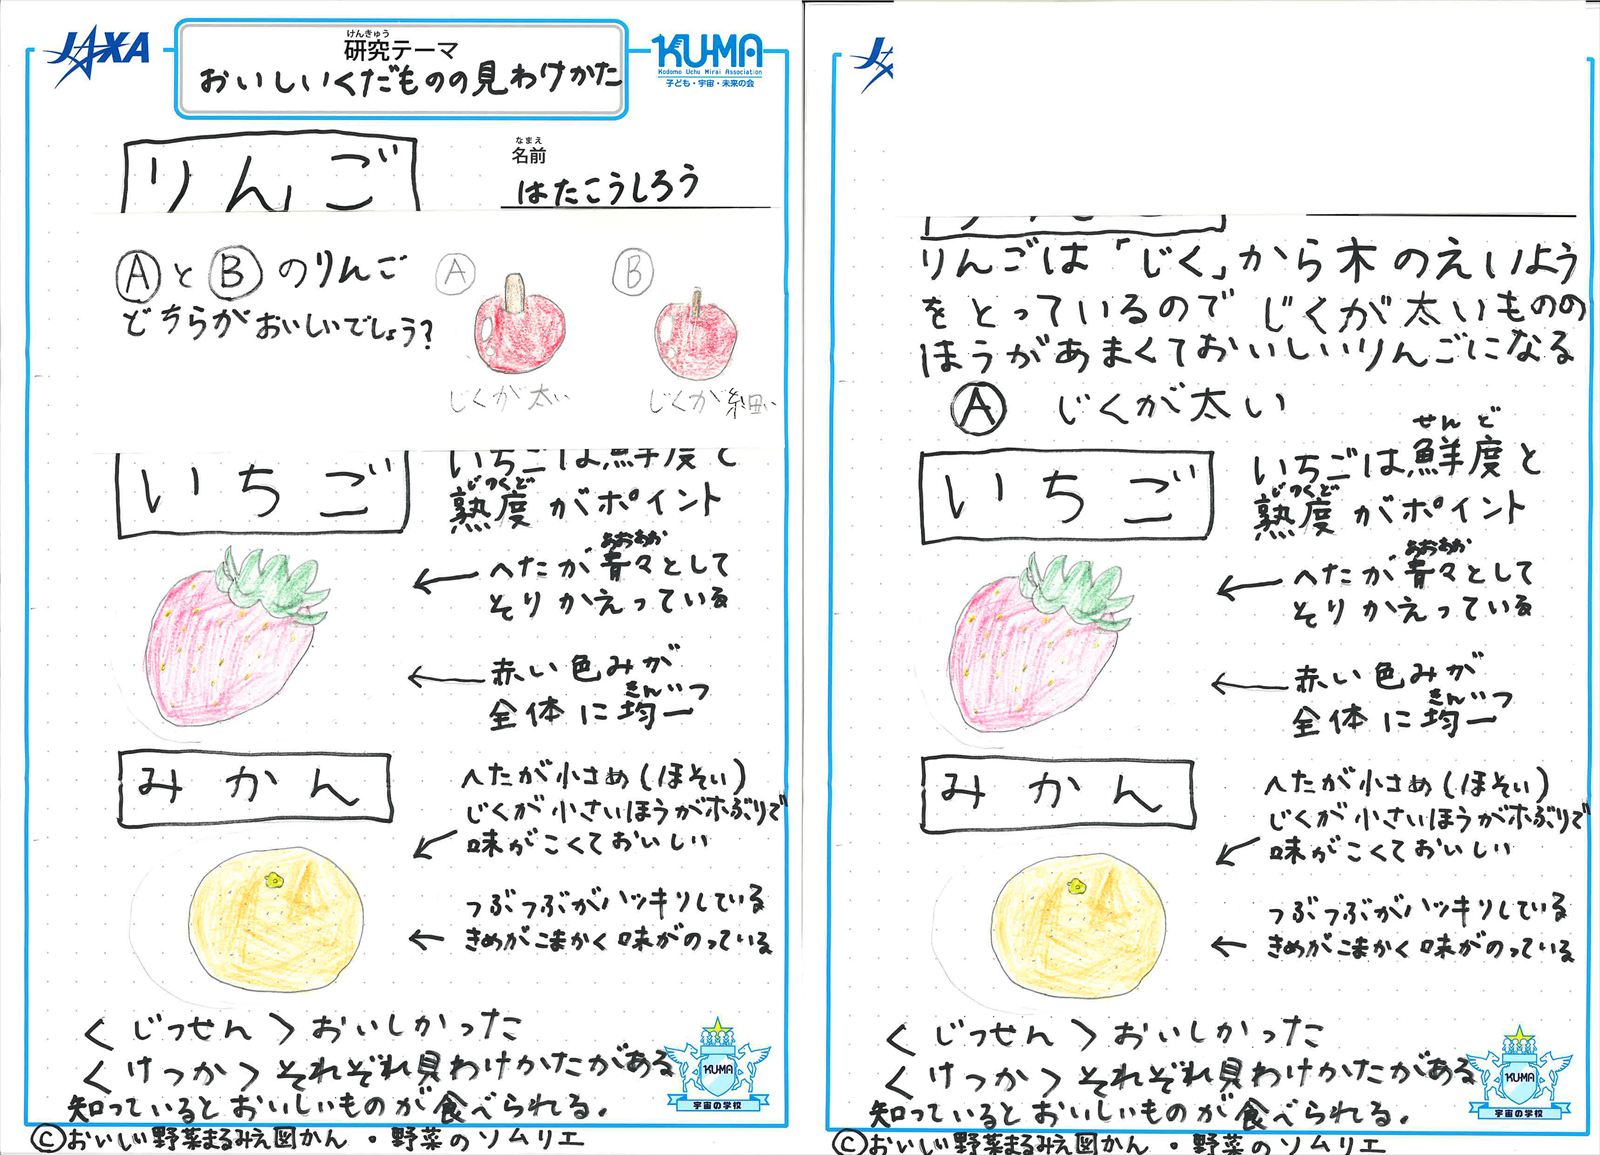 JAXA
けんきゅう
研究テーマ
おいしいくだものの見わけかた
KU-MA
Kodomo Uchu Mirai Association
子ども・宇宙・未来の会
りんご
なまえ
名前
はたこうしろう
AとBのりんご
どちらがおいしいでしょう?
A
B
じくが太い
じくが細い
いちご
いちごは鮮度と
じゅくど
熟度がポイント
あおあお
へたが青々として
そりかえっている
赤い色みが
きんいつ
全体に均一
みかん
へたが小さめ(ほそい)
じくが小さいほうが木ぶりで
味がこくておいしい
つぶつぶがハッキリしている
きめがこまかく味がのっている
<じっせん>おいしかった
<けっか>それぞれ見わけかたがある
知っているとおいしいものが食べられる。
KU-MA
宇宙の学校
©おいしい野菜まるみえ図かん・野菜のソムリエ
りんごは「じく」から木のえいよう
をとっているので じくが太いものの
ほうがあまくておいしいりんごになる
A じくが太い
いちご
せんど
いちごは鮮度と
じゅくど
熟度がポイント
あおあお
へたが青々として
そりかえっている
赤い色みが
きんいつ
全体に均一
みかん
へたが小さめ(ほそい)
じくが小さいほうが木ぶりで
味がこくておいしい
つぶつぶがハッキリしている
きめがこまかく味がのっている
<じっせん>おいしかった
<けっか>それぞれ見わけかたがある
知っているとおいしいものが食べられる。
KU-MA
宇宙の学校
©おいしい野菜まるみえ図かん・野菜のソムリエ